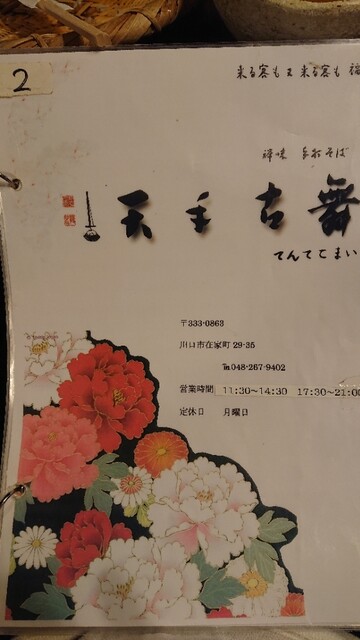 2
来る客もよ来る客も福
禅味 手打そば
天手古舞
てんてこまい
〒333-0863
川口市在家町29-35
℡048-267-9402
営業時間 11:30~14:30 17:30~21:00
定休日 月曜日